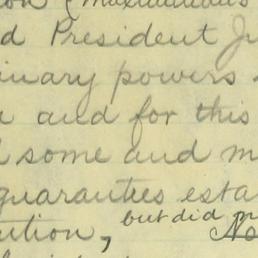 d President Ju
inary powers
and for this
some and m
guaranties esta
ution, but did